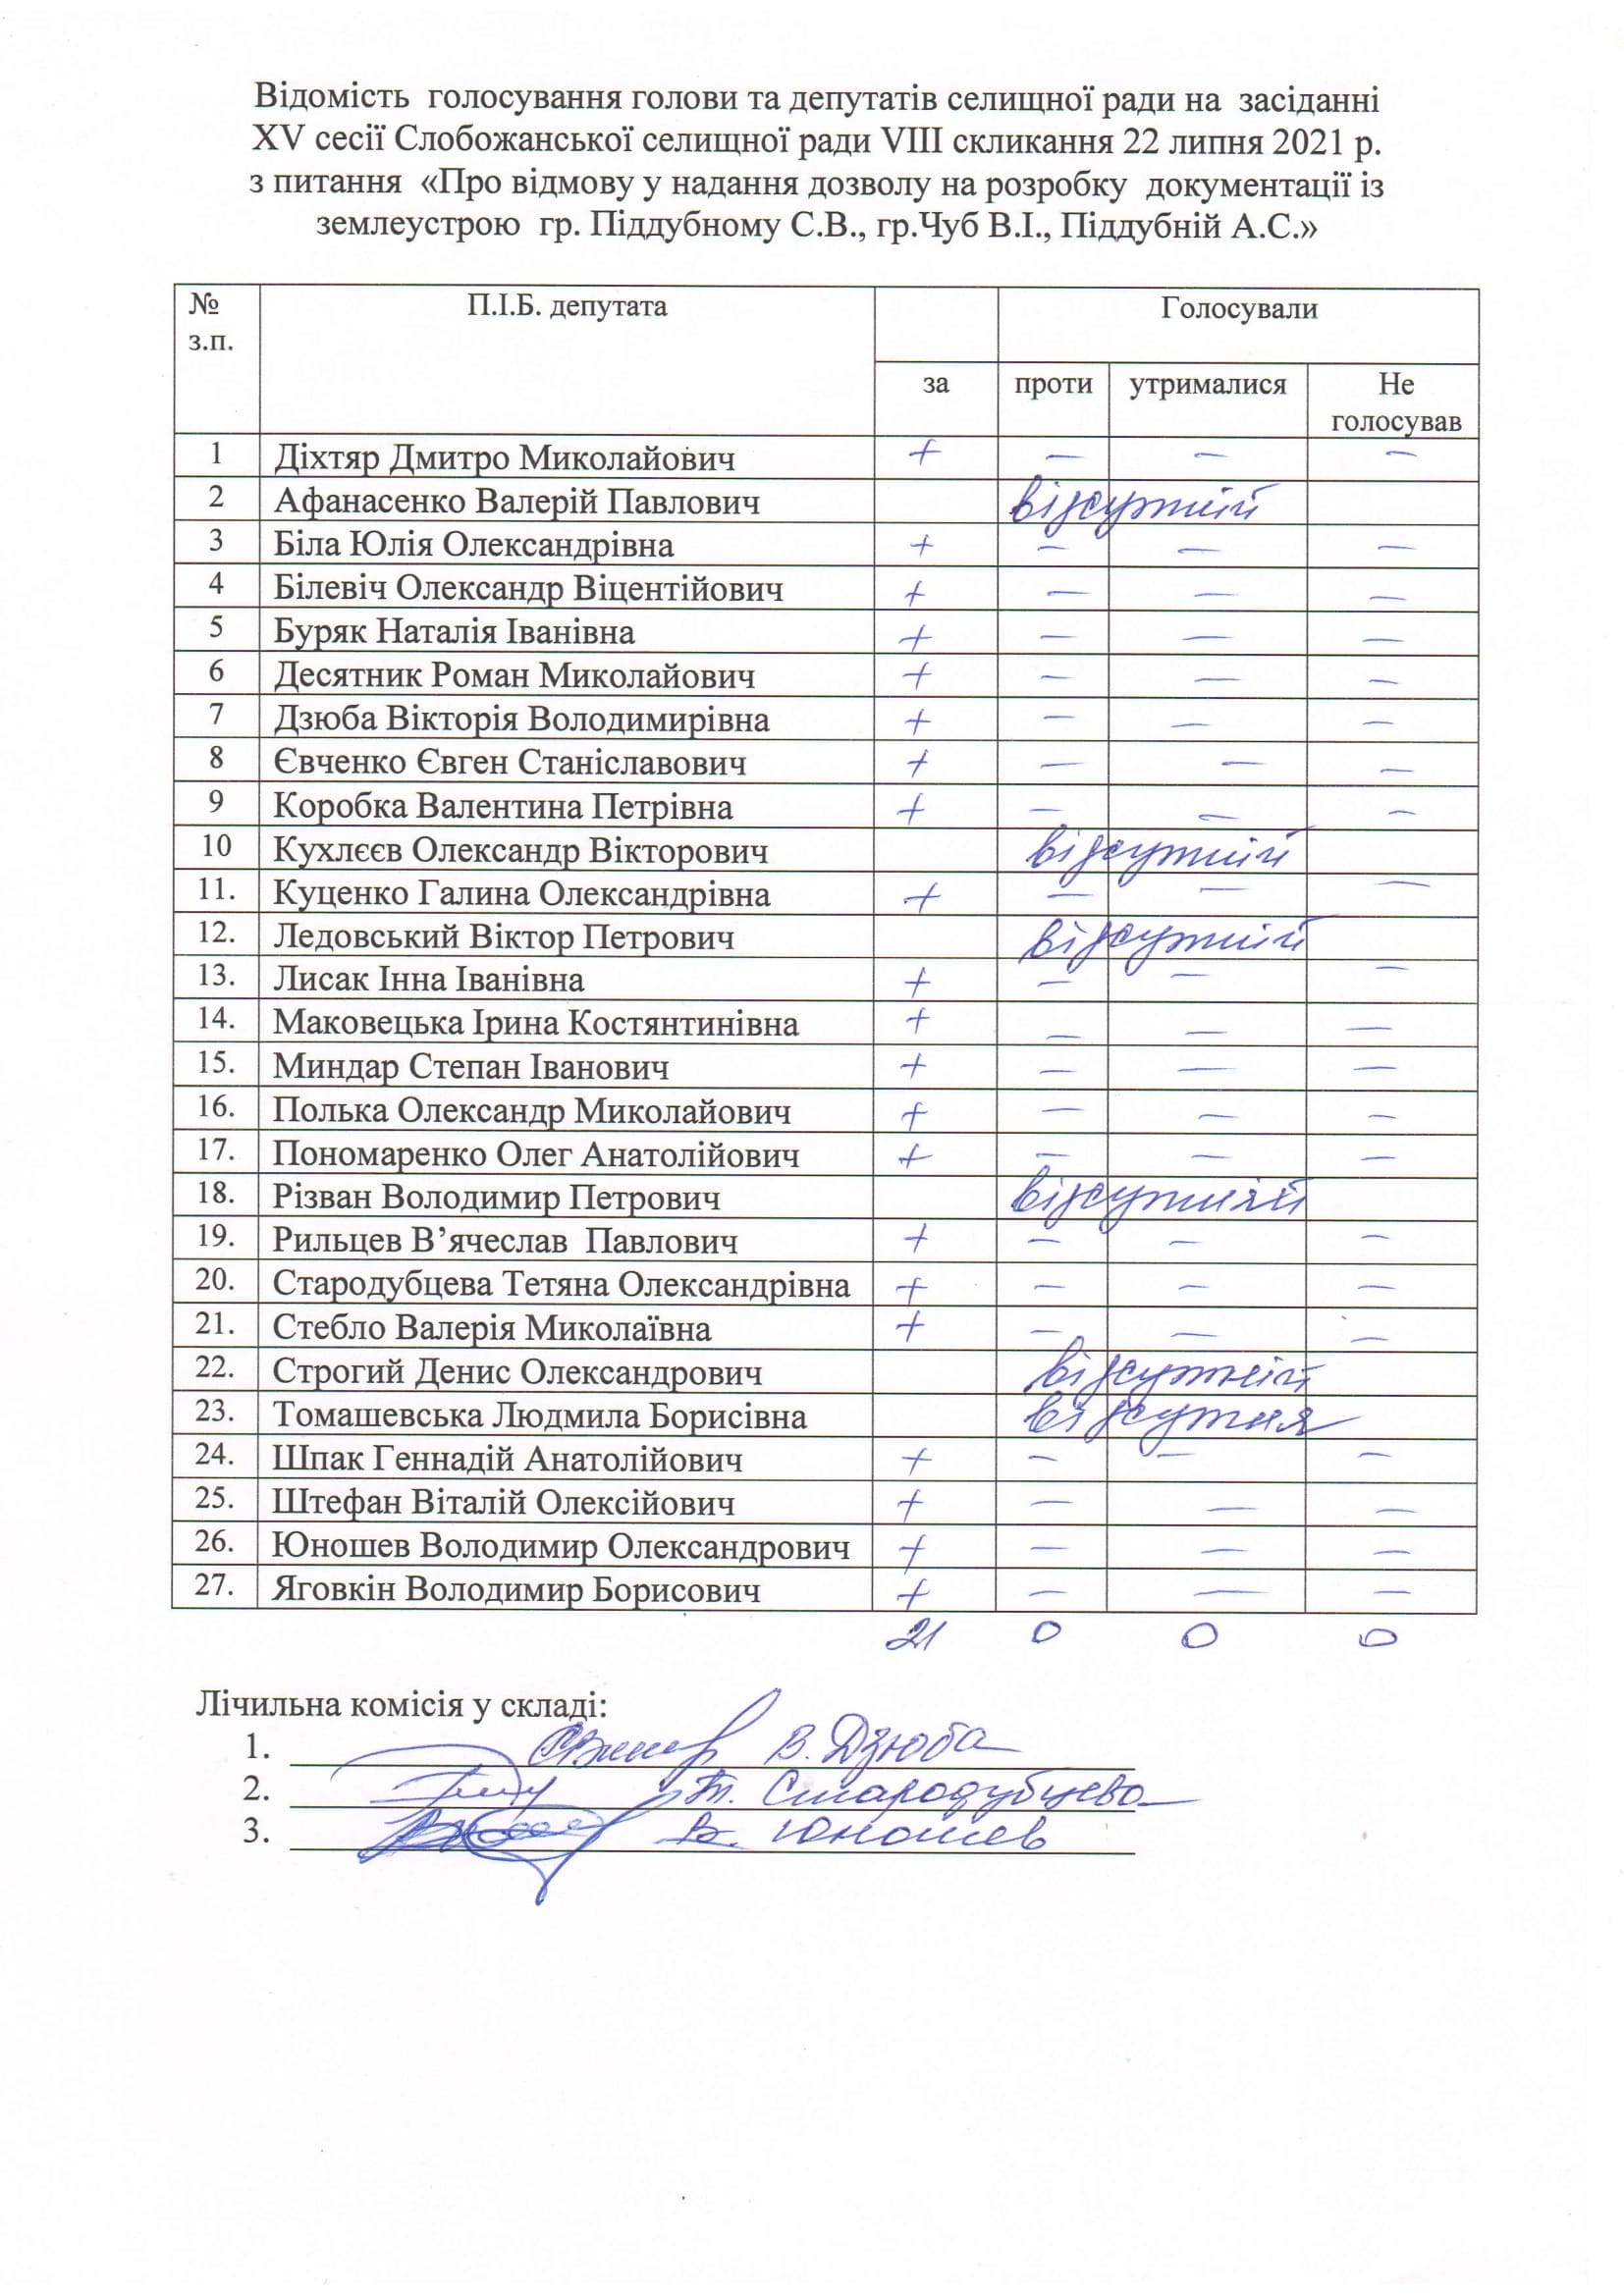 Відомість голосування голови та депутатів селищної ради на засіданні
XV сесії Слобожанської селищної ради VIII скликання 22 липня 2021 р.
з питання «Про відмову у надання дозволу на розробку документації із
землеустрою гр. Піддубному С.В., гр.Чуб В.І., Піддубній А.С.»
№ з.п. П.І.Б. депутата Голосували
за проти утрималися Не голосував
1 Діхтяр Дмитро Миколайович + — — —
2 Афанасенко Валерій Павлович відсутній
3 Біла Юлія Олександрівна + — — —
4 Білевіч Олександр Віцентійович + — — —
5 Буряк Наталія Іванівна + — — —
6 Десятник Роман Миколайович + — — —
7 Дзюба Вікторія Володимирівна + — — —
8 Євченко Євген Станіславович + — — —
9 Коробка Валентина Петрівна + — — —
10 Кухлєєв Олександр Вікторович відсутній
11. Куценко Галина Олександрівна + — — —
12. Ледовський Віктор Петрович відсутній
13. Лисак Інна Іванівна + — — —
14. Маковецька Ірина Костянтинівна + — — —
15. Миндар Степан Іванович + — — —
16. Полька Олександр Миколайович + — — —
17. Пономаренко Олег Анатолійович + — — —
18. Різван Володимир Петрович відсутній
19. Рильцев В’ячеслав Павлович + — — —
20. Стародубцева Тетяна Олександрівна + — — —
21. Стебло Валерія Миколаївна + — — —
22. Строгий Денис Олександрович відсутній
23. Томашевська Людмила Борисівна відсутня
24. Шпак Геннадій Анатолійович + — — —
25. Штефан Віталій Олексійович + — — —
26. Юношев Володимир Олександрович + — — —
27. Яговкін Володимир Борисович + — — —
21 0 0 0
Лічильна комісія у складі:
1. В. Дзюба
2. Т. Стародубцева
3. В. Юношев